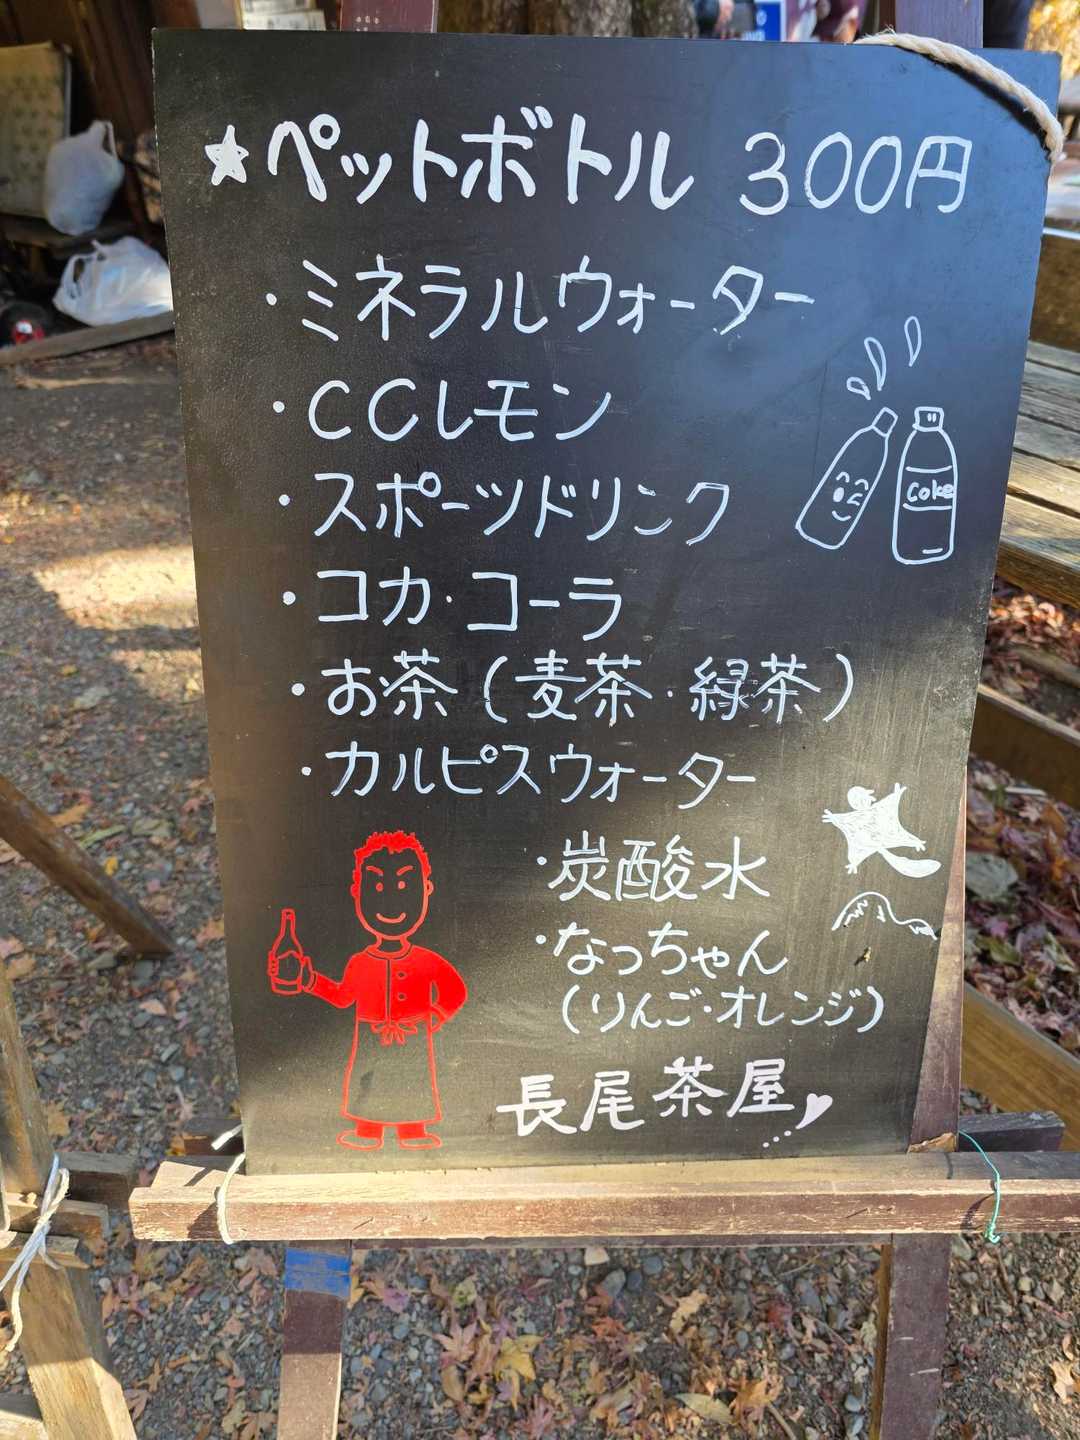 ★ペットボトル 300円
・ミネラルウォーター
・CCレモン
・スポーツドリンク
・コカ・コーラ
・お茶(麦茶・緑茶)
・カルピスウォーター
・炭酸水
・なっちゃん
(りんご・オレンジ)
長尾茶屋
Coke